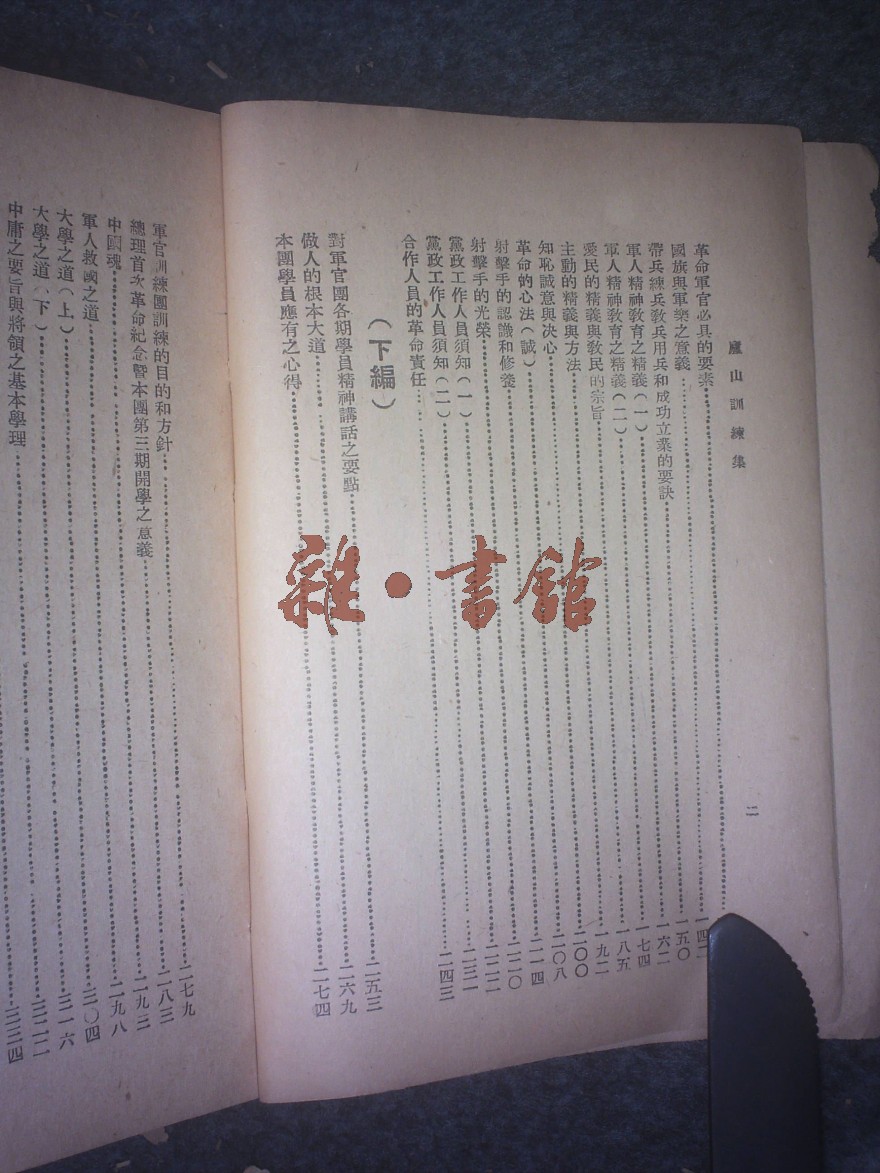 廬山訓練集
二
革命軍官必具的要素
國旗與軍樂之意義 一五〇
帶兵練兵敎兵用兵和成功立業的要訣 一六二
軍人精神敎育之精義(一) 一七四
軍人精神敎育之精義(二) 一八五
愛民的精義與敎民的宗旨 一九二
主動的精義與方法 二〇〇
知恥誠意與決心 二〇八
革命的心法(誠) 二一四
射擊手的認識和修養 二二〇
射擊手的光榮
黨政工作人員須知(一)
黨政工作人員須知(二)
合作人員的革命責任 二四三
(下編)
對軍官團各期學員精神講話之要點 二五三
做人的根本大道 二六九
本團學員應有之心得 二七四
軍官訓練團訓練的目的和方針 二七九
總理首次革命紀念暨本團第三期開學之意義 二八三
中國魂
軍人救國之道 二九八
大學之道(上)
大學之道(下)
中庸之要旨與將領之基本學理
雜·書館